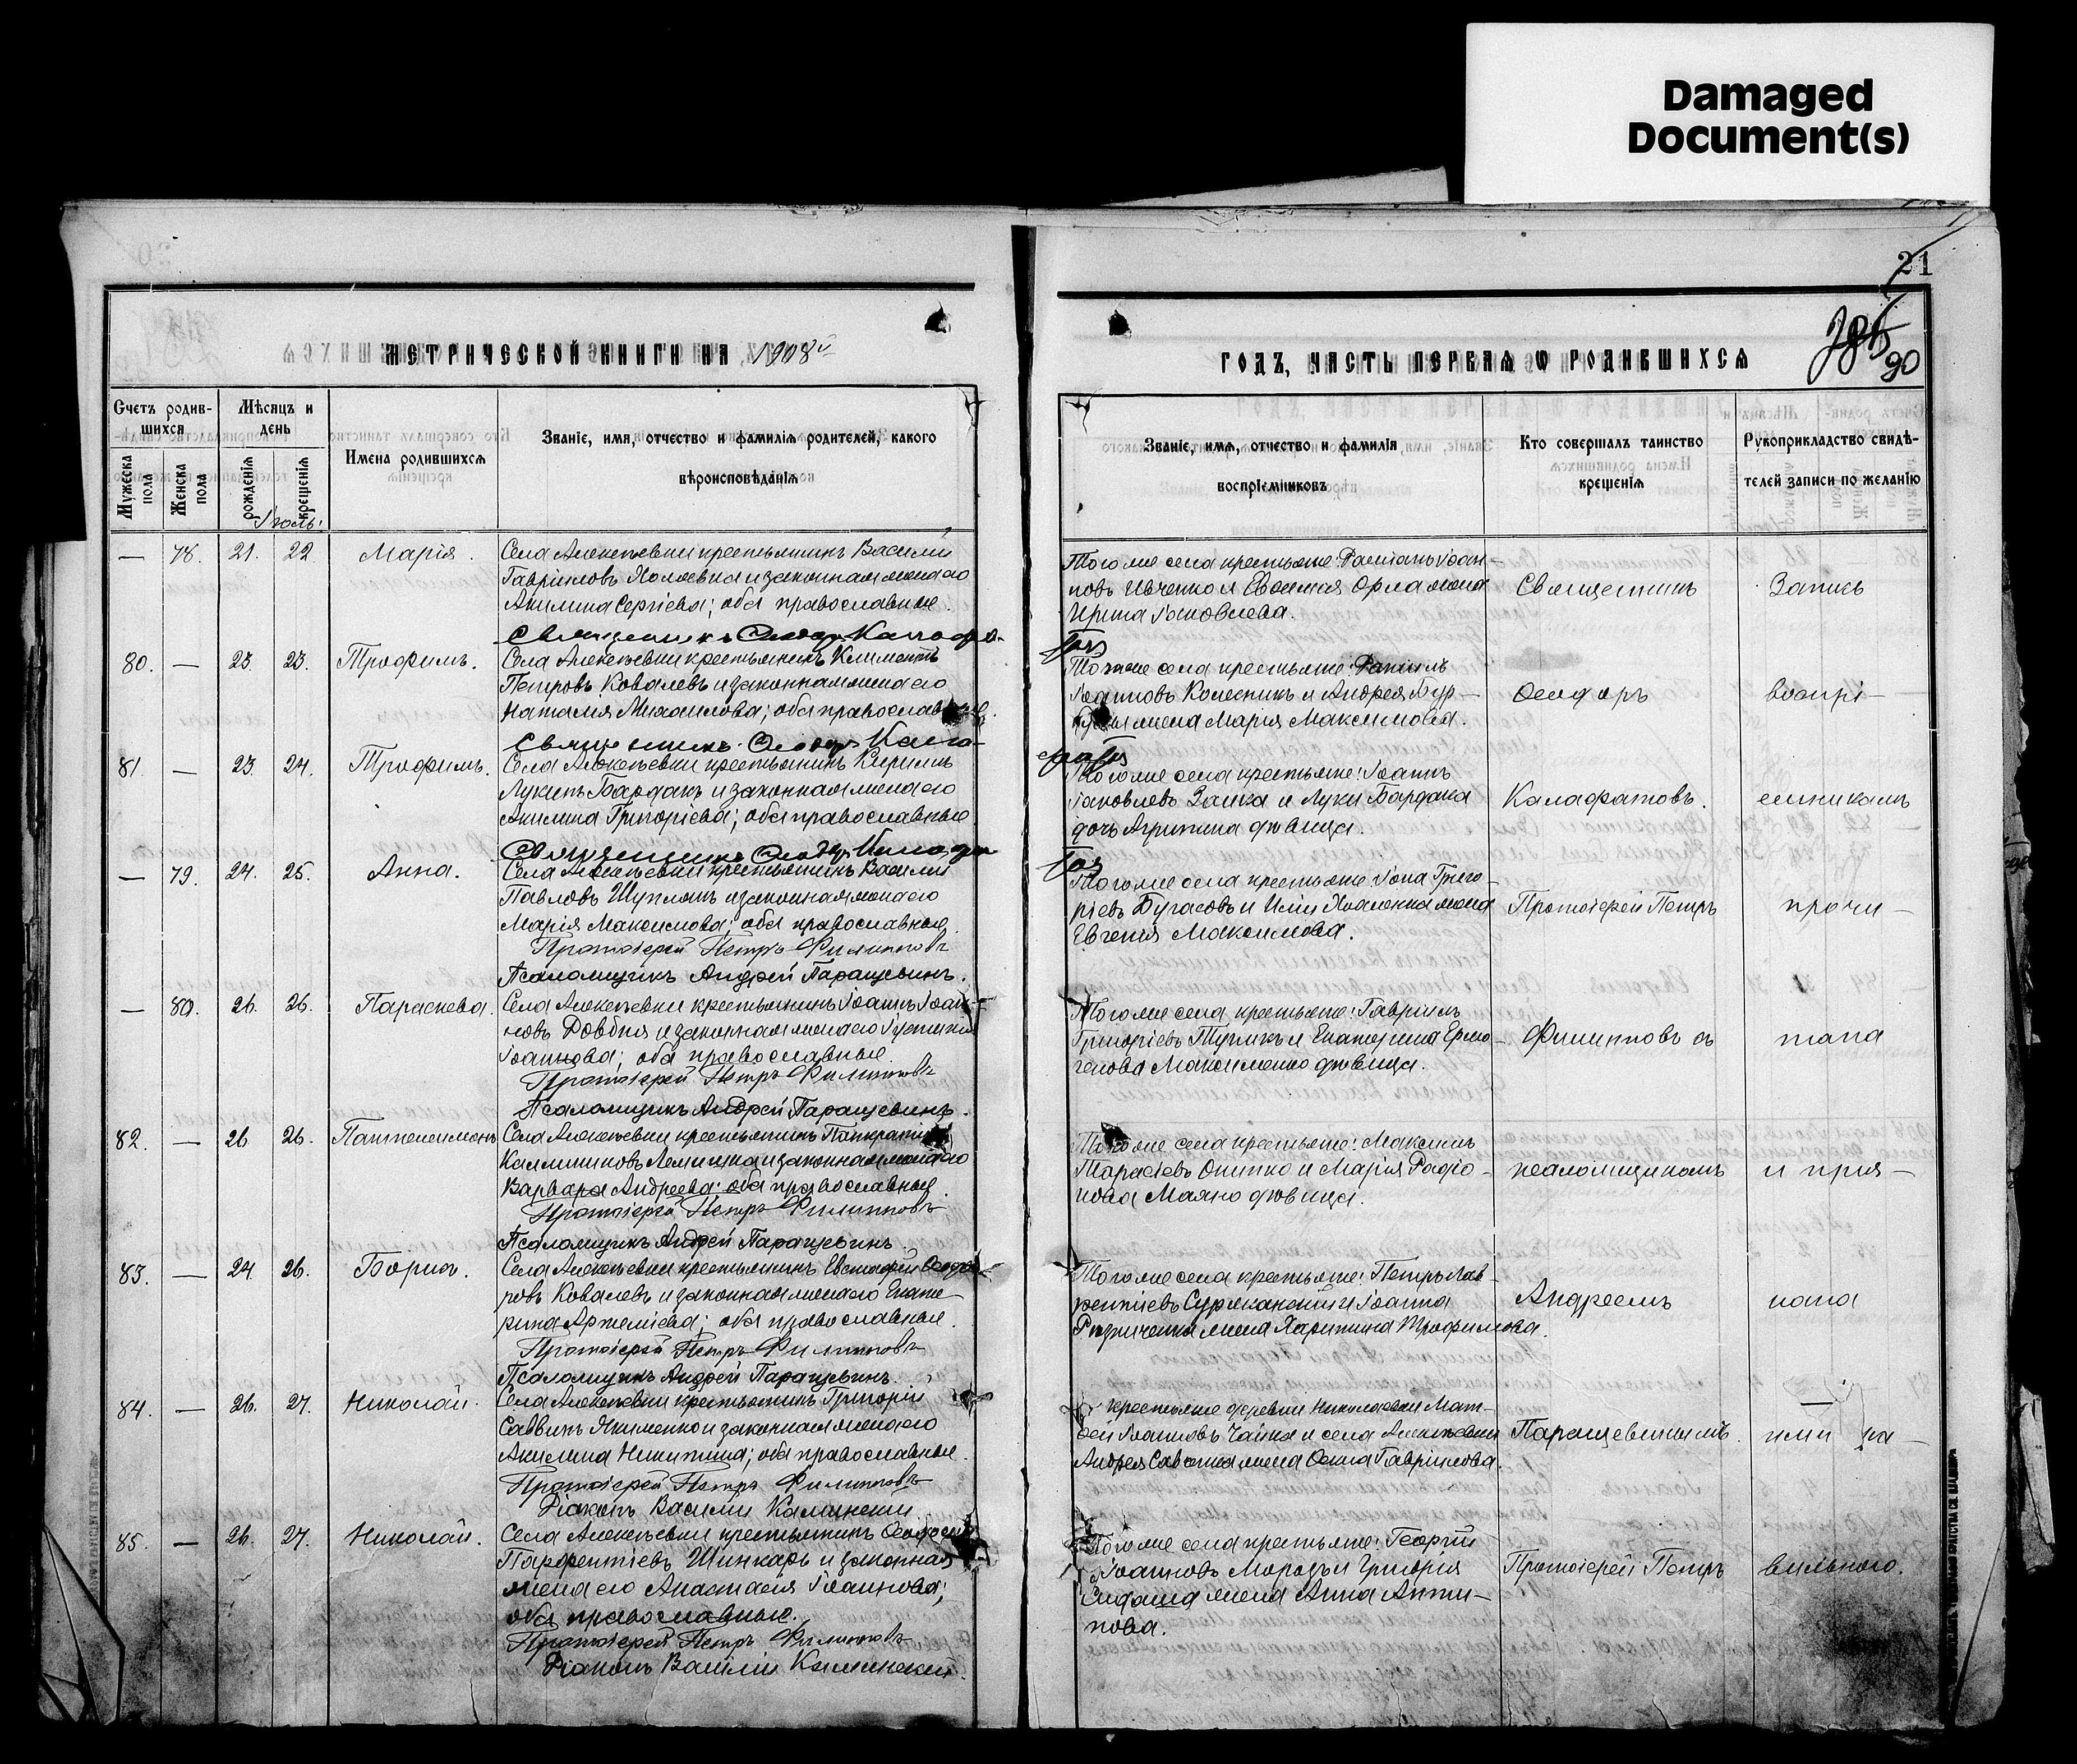 Damaged
Document(s)
21
МЕТРИЧЕСКОЙ КНИГИ НА 1908й
ГОДЪ, ЧАСТЬ ПЕРВАЯ О РОДИВШИХСЯ
90
Счетъ родив-
шихся
Мѣсяцъ и
день
Мужеска
пола
Женска
пола
рожденія
крещенія
Имена родившихся
Званіе, имя, отчество и фамилія родителей, какого
вѣроисповѣданія
Званіе, имя, отчество и фамилія
воспріемниковъ
Кто совершалъ таинство
крещенія
Рукоприкладство свидѣ-
телей записи по желанію
Іюль.
— 78. 21. 22 Марія.
Села Алексѣевки крестьянинъ Василій
Гавріиловъ и законная жена его
Акилина Сергіева; оба православные.
Священникъ Ѳеодоръ Калафа-
товъ
Того же села крестьяне: Іоан-
новъ Ивченко и Евфимія Орла жена
Ирина Іаковлева.
Священникъ
Запись
80. — 23. 23. Трофимъ.
Села Алексѣевки крестьянинъ Климентъ
Петровъ Ковалевъ и законная жена его
Наталія Михаилова; оба православные.
Священникъ Ѳеодоръ Кала-
фатовъ
Того же села крестьяне: Даніилъ
Іоанновъ Колесникъ и Андрея Бур-
жена Марія Максимова.
Ѳеодоръ
воспрі-
81. — 23. 24. Трофимъ.
Села Алексѣевки крестьянинъ Кириллъ
Лукинъ Бардакъ и законная жена его
Акилина Григоріева; оба православные
Священникъ Ѳеодоръ Калафа-
товъ
Того же села крестьяне: Іоаннъ
Іаковлевъ Заика и Луки Бардака
дочь Агрипина дѣвица.
Калафатовъ.
емникамъ
— 79. 24. 25. Анна.
Села Алексѣевки крестьянинъ Василій
Павловъ и законная жена его
Марія Максимова; оба православные.
Протоіерей Петръ Филипповъ
Псаломщикъ Андрей Паращевинъ.
Того же села крестьяне: Іона Григо-
ріевъ Бугасовъ и Иліи жена
Евгенія Максимова.
Протоіерей Петръ
прочи-
— 80. 26. 26. Параскева.
Села Алексѣевки крестьянинъ Іоаннъ Іоан-
новъ Довбня и законная жена его
Іоаннова; оба православные.
Протоіерей Петръ Филипповъ
Псаломщикъ Андрей Паращевинъ.
Того же села крестьяне: Гавріилъ
Григоріевъ и Екатерина Ермо-
генова Максименко дѣвица.
Филипповъ съ
тана
82. — 26 26. Пантелеимонъ
Села Алексѣевки крестьянинъ Панкратій
Каллиниковъ и законная жена его
Варвара Андреева; оба православные.
Протоіерей Петръ Филипповъ
Псаломщикъ Андрей Паращевинъ.
Того же села крестьяне: Максимъ
Тарасіевъ Онипко и Марія Родіо-
нова Маяно дѣвица.
псаломщикомъ
и приз-
83. — 24. 26. Борисъ.
Села Алексѣевки крестьянинъ Евстафій Ѳеодо-
ровъ Ковалевъ и законная жена его Екате-
рина Артеміева; оба православные.
Протоіерей Петръ Филипповъ
Псаломщикъ Андрей Паращевинъ.
Того же села крестьяне: Петръ Лав-
рентіевъ и Іоанна
Резниченка жена Харитина Трофимова.
Андреемъ
нана
84. — 26. 27. Николай.
Села Алексѣевки крестьянинъ Григорій
Саввинъ Якименко и законная жена его
Акилина Никитина; оба православные.
Протоіерей Петръ Филипповъ
Діаконъ Василій Калинскій.
крестьяне деревни Николаевки Мат-
ѳей Іоанновъ Чайка и села Алексѣевки
Андрея Савченка жена Гавріилова.
Паращевинымъ.
ими пра-
85. — 26. 27. Николай.
Села Алексѣевки крестьянинъ Ѳеодосій
Парфентіевъ Шинкарь и законная
жена его Анастасія Іоаннова;
оба православные.
Протоіерей Петръ Филипповъ
Діаконъ Василій Калинскій.
Того же села крестьяне: Георгій
Іоанновъ Морозъ и Григорія
жена Анна Анти-
пова.
Протоіерей Петръ
вильною.